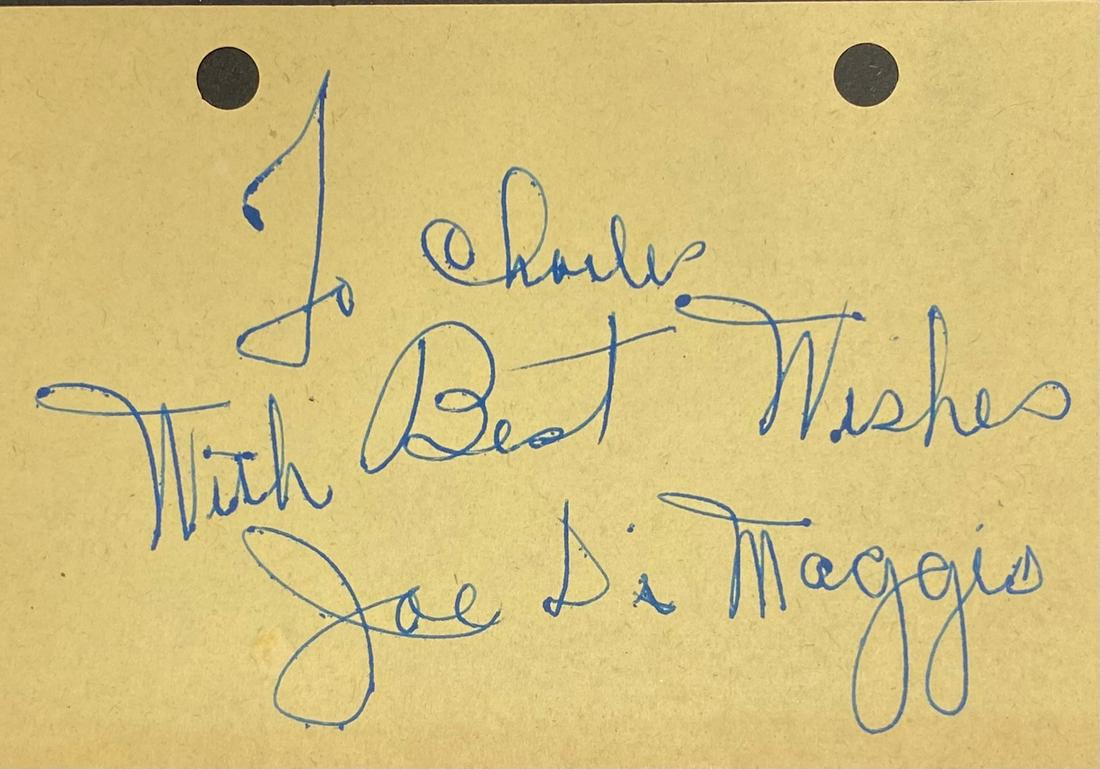 To Charles
With Best Wishes
Joe Di Maggio